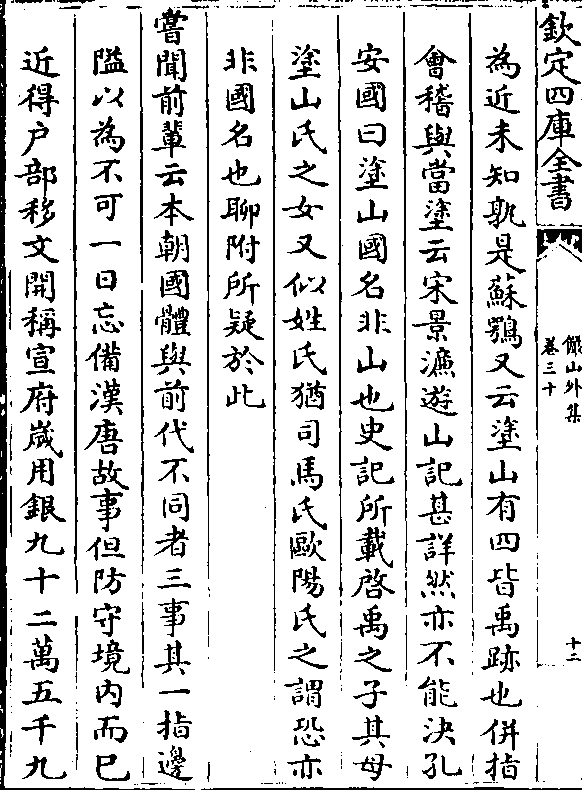 欽定四庫全書
儼山外集
卷三十
十二
為近未知孰是蘇鶚又云塗山有四皆禹跡也併指
會稽與當塗云宋景濂遊山記甚詳然亦不能決孔
安國曰塗山國名非山也史記所載啓禹之子其母
塗山氏之女又似姓氏猶司馬氏歐陽氏之謂恐亦
非國名也聊附所疑於此
嘗聞前輩云本朝國體與前代不同者三事其一指邊
隘以為不可一日忘備漢唐故事但防守境內而已
近得户部移文開稱宣府歲用銀九十二萬五千九